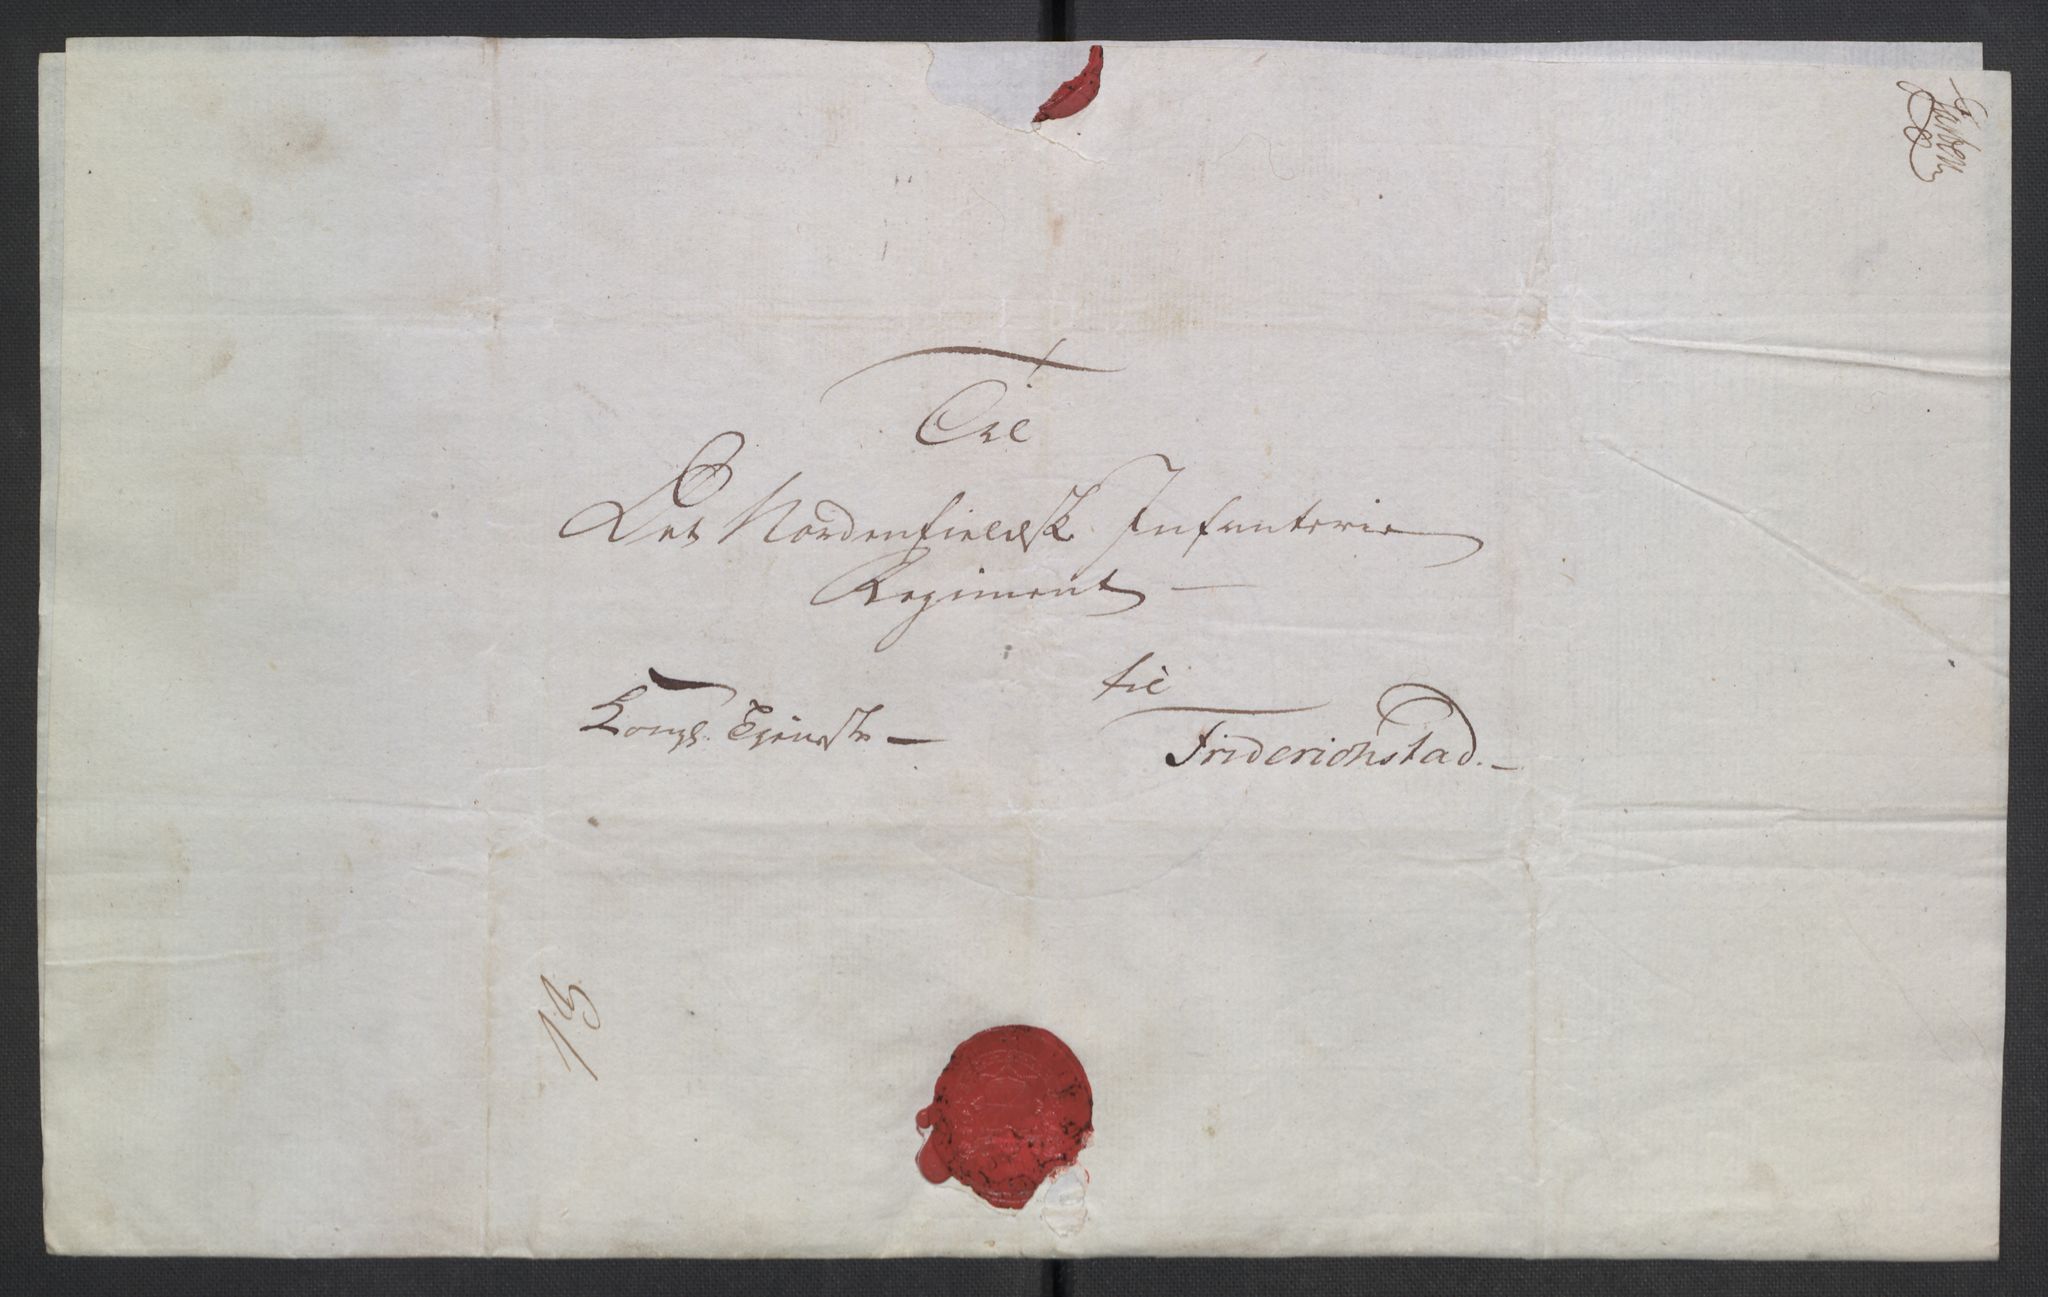 Til
Det Nordenfieldske Infanterie
Regiment —
Kongl. Tjeneste —
til
Friderichstad. —
13